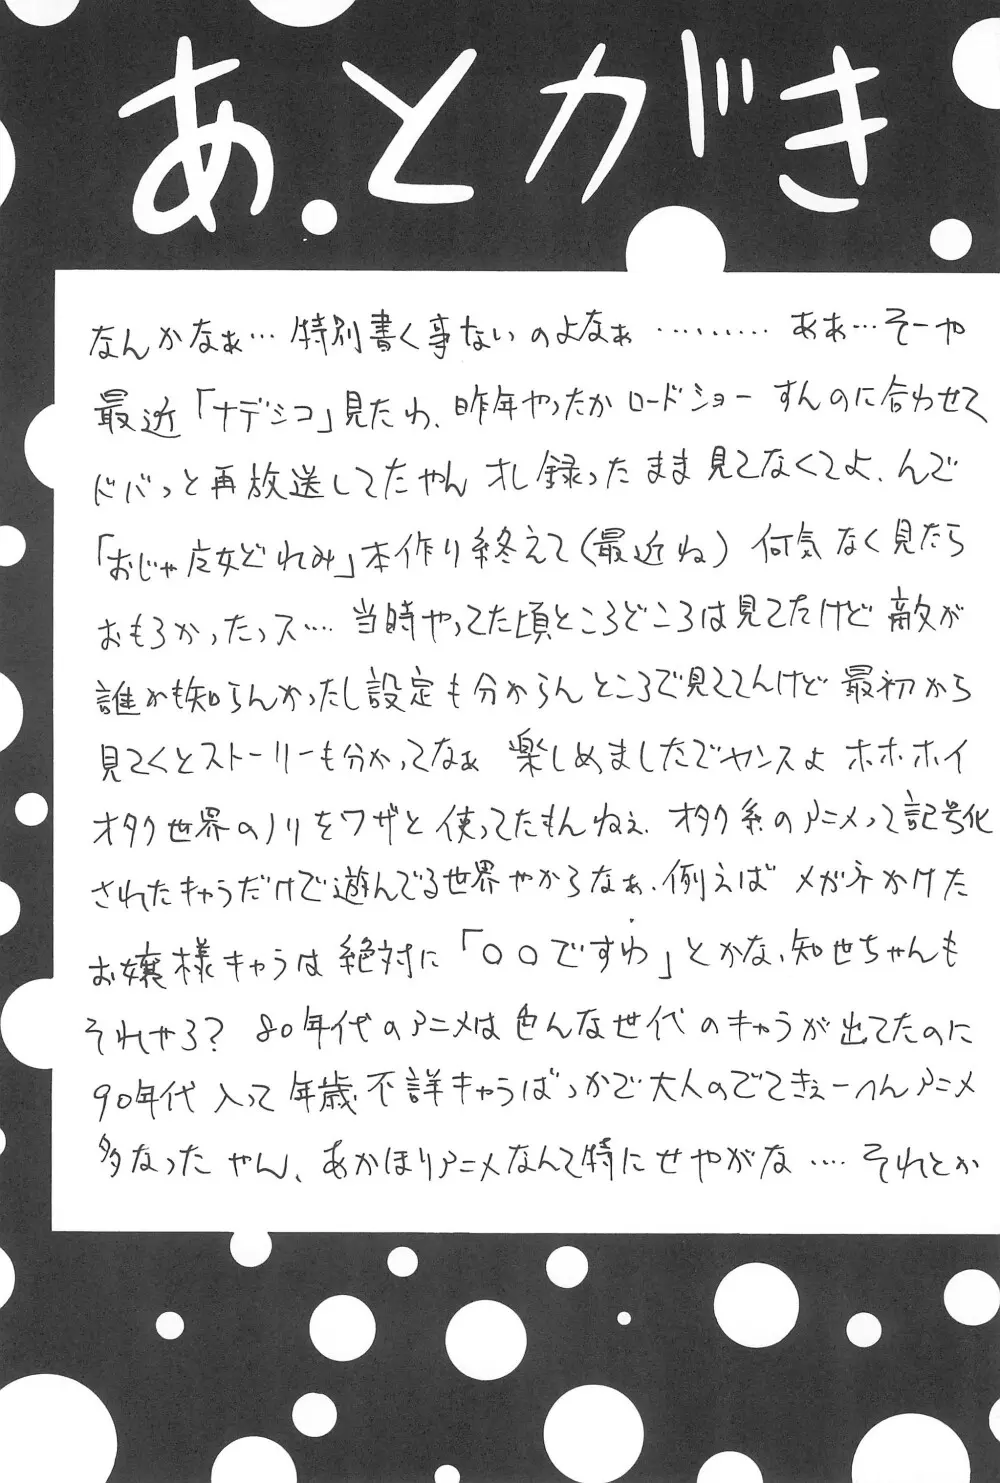 あとがき
なんかなぁ…特別書く事ないのよなぁ………ああ…そーや
最近「ナデシコ」見たわ、昨年やったか ロードショー すんのに合わせて
ドバっと再放送してたやん オレ録ったまま見てなくてよ、んで
「おじゃ魔女どれみ」本作り終えて(最近ね) 何気なく見たら
おもろかったっス… 当時やってた頃ところどころは見てたけど 敵が
誰かも知らんかったし設定も分からんところで見ててんけど 最初から
見てくとストーリーも分かってなぁ 楽しめましたでヤンスよ ホホホイ
オタク世界のノリをワザと使ってたもんねぇ、オタク系のアニメって記号化
されたキャラだけで遊んでる世界やからなぁ、例えば メガネかけた
お嬢様キャラは絶対に「○○ですわ」とかな、知世ちゃんも
それやろ? 80年代のアニメは色んな世代のキャラが出てたのに
90年代入って年歳不詳キャラばっかで大人のでてきぇーへんアニメ
多なったやん、あかほりアニメなんて特にせやがな…. それとか